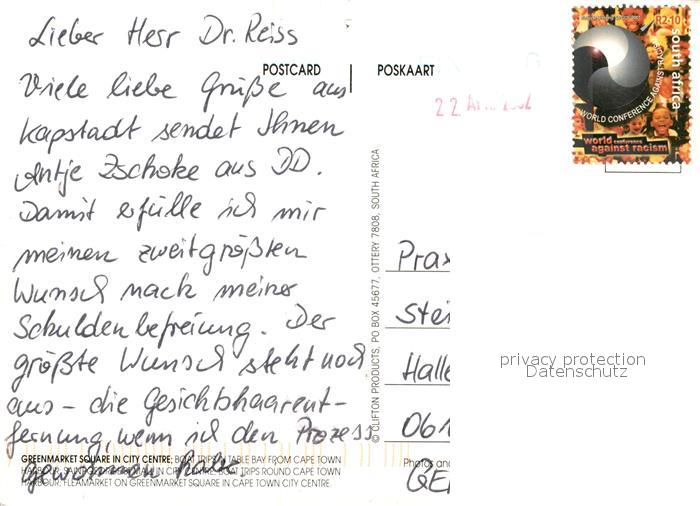 Lieber Herr Dr. Reiss
POSTCARD
POSKAART
Viele liebe Grüße aus
Kapstadt sendet Ihnen
Antje Zschoke aus DD.
Damit erfülle ich mir
meinen zweitgrößten
Wunsch nach meiner
Schuldenbefreiung. Der
größte Wunsch steht noch
aus – die Gesichtshaarent-
fernung, wenn ich den Prozess
gewonnen habe.
GREENMARKET SQUARE IN CITY CENTRE; BOAT TRIPS IN TABLE BAY FROM CAPE TOWN
HARBOUR;
BOAT TRIPS ROUND CAPE TOWN
HARBOUR; FLEAMARKET ON GREENMARKET SQUARE IN CAPE TOWN CITY CENTRE.
© CLIFTON PRODUCTS, PO BOX 45677, OTTERY 7808, SOUTH AFRICA
R2·10
south africa
WORLD CONFERENCE AGAINST RACISM
world conference
against racism
Prax
Stei
Halle
061
Photos and
privacy protection
Datenschutz